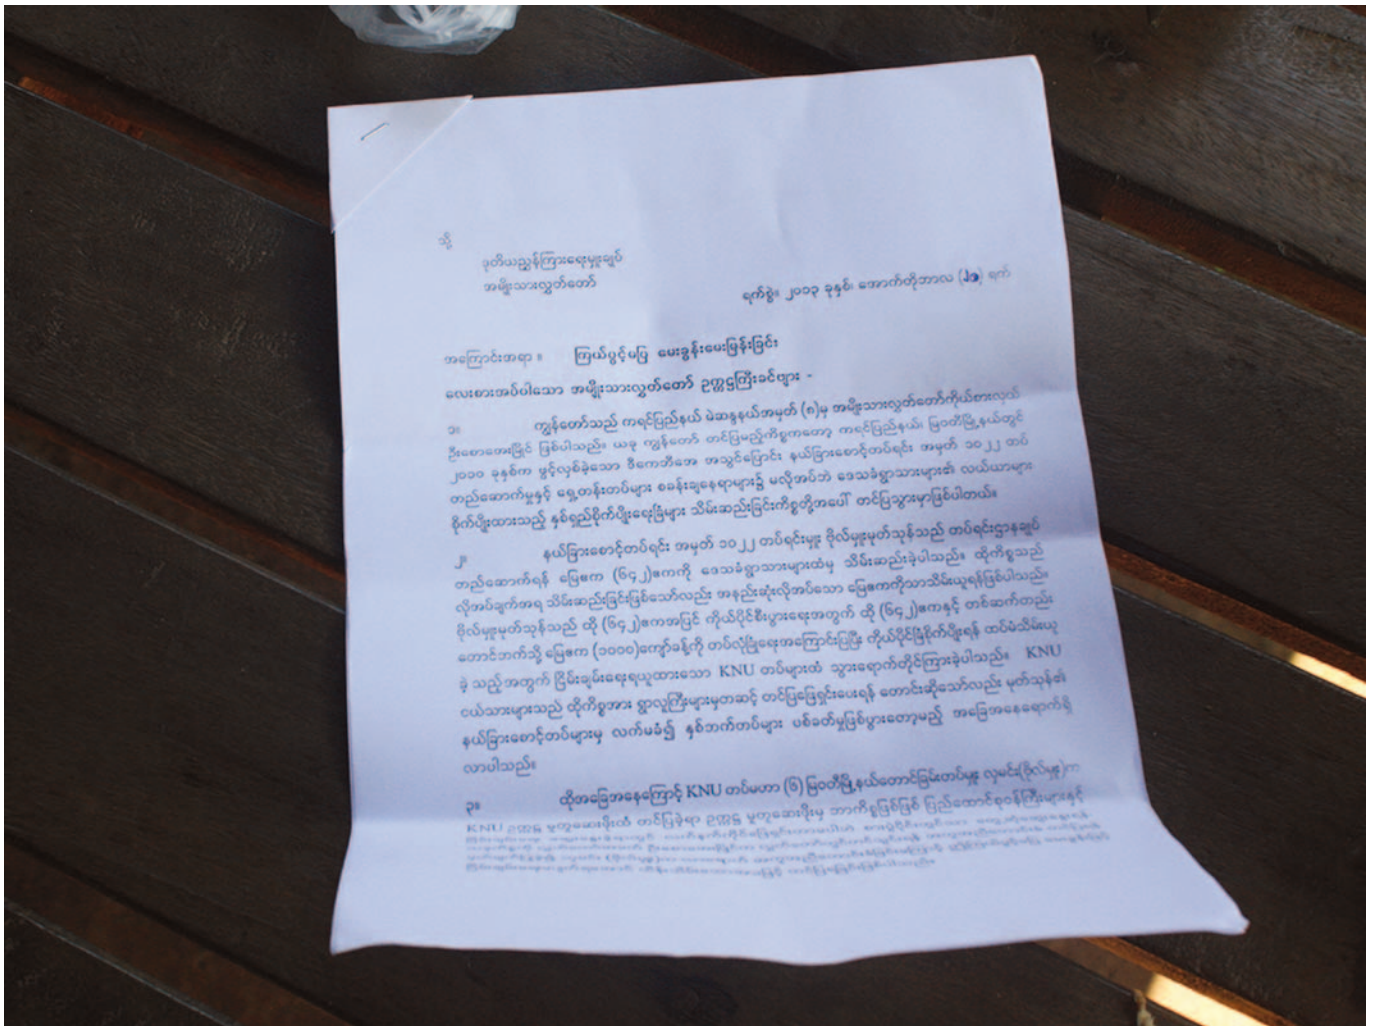 သို့
ဒုတိယညွှန်ကြားရေးမှူးချုပ်
အမျိုးသားလွှတ်တော်
ရက်စွဲ၊ ၂၀၁၃ ခုနှစ်၊ အောက်တိုဘာလ (၂၁) ရက်
အကြောင်းအရာ ။ ကြယ်ပွင့်မပြ မေးခွန်းမေးမြန်းခြင်း
လေးစားအပ်ပါသော အမျိုးသားလွှတ်တော် ဥက္ကဋ္ဌကြီးခင်ဗျား -
၁။ ကျွန်တော်သည် ကရင်ပြည်နယ် မဲဆန္ဒနယ်အမှတ် (၈)မှ အမျိုးသားလွှတ်တော်ကိုယ်စားလှယ်
ဦးစောအေးမြိုင် ဖြစ်ပါသည်။ ယခု ကျွန်တော် တင်ပြမည့်ကိစ္စကတော့ ကရင်ပြည်နယ်၊ မြဝတီမြို့နယ်တွင်
၂၀၁၀ ခုနှစ်က ဖွင့်လှစ်ခဲ့သော ဒီကေဘီအေ အသွင်ပြောင်း နယ်ခြားစောင့်တပ်ရင်း အမှတ် ၁၀၂၂ တပ်
တည်ဆောက်မှုနှင့် ရှေ့တန်းတပ်များ စခန်းချနေရာများ၌ မလိုအပ်ဘဲ ဒေသခံရွာသားများ၏ လယ်ယာများ
စိုက်ပျိုးထားသည့် နှစ်ရှည်စိုက်ပျိုးရေးခြံများ သိမ်းဆည်းခြင်းကိစ္စတို့အပေါ် တင်ပြသွားမှာဖြစ်ပါတယ်။
၂။ နယ်ခြားစောင့်တပ်ရင်း အမှတ် ၁၀၂၂ တပ်ရင်းမှူး ဗိုလ်မှူးမုတ်သုန်သည် တပ်ရင်းဌာနချုပ်
တည်ဆောက်ရန် မြေဧက (၆၄၂)ဧကကို ဒေသခံရွာသားများထံမှ သိမ်းဆည်းခဲ့ပါသည်။ ထိုကိစ္စသည်
လိုအပ်ချက်အရ သိမ်းဆည်းခြင်းဖြစ်သော်လည်း အနည်းဆုံးလိုအပ်သော မြေဧကကိုသာသိမ်းယူရန်ဖြစ်ပါသည်။
ဗိုလ်မှူးမုတ်သုန်သည် ထို (၆၄၂)ဧကအပြင် ကိုယ်ပိုင်စီးပွားရေးအတွက် ထို (၆၄၂)ဧကနှင့် တစ်ဆက်တည်း
တောင်ဘက်သို့ မြေဧက (၁၀၀၀)ကျော်ခန့်ကို တပ်လုံခြုံရေးအကြောင်းပြပြီး ကိုယ်ပိုင်ခြံစိုက်ပျိုးရန် ထပ်မံသိမ်းယူ
ခဲ့ သည့်အတွက် ငြိမ်းချမ်းရေးရယူထားသော KNU တပ်များထံ သွားရောက်တိုင်ကြားခဲ့ပါသည်။ KNU
ငယ်သားများသည် ထိုကိစ္စအား ရွာလူကြီးများမှတဆင့် တင်ပြဖြေရှင်းပေးရန် တောင်းဆိုသော်လည်း မုတ်သုန်၏
နယ်ခြားစောင့်တပ်များမှ လက်မခံ၍ နှစ်ဘက်တပ်များ ပစ်ခတ်မှုဖြစ်ပွားတော့မည့် အခြေအနေရောက်ရှိ
လာပါသည်။
၃။ ထိုအခြေအနေကြောင့် KNU တပ်မဟာ (၆) မြဝတီမြို့နယ်တောင်ခြမ်းတပ်မှူး လှမင်း(ဗိုလ်မှူး)က
KNU ဥက္ကဋ္ဌ မူတူဆေးဖိုးထံ တင်ပြခဲ့ရာ ဥက္ကဋ္ဌ မူတူဆေးဖိုးမှ ဘာကိစ္စဖြစ်ဖြစ် ပြည်ထောင်စုဝန်ကြီးများနှင့်